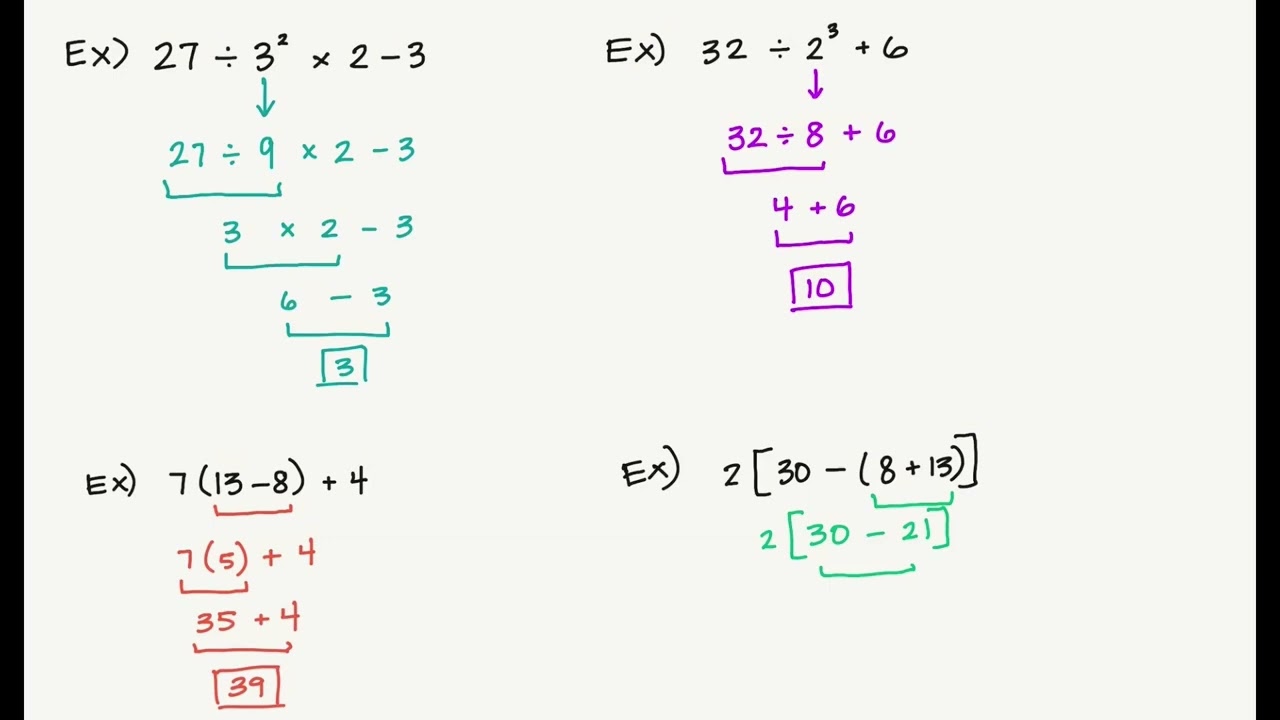 Ex) 27 ÷ 3² × 2 – 3
27 ÷ 9 × 2 – 3
3 × 2 – 3
6 – 3
3
Ex) 32 ÷ 2³ + 6
32 ÷ 8 + 6
4 + 6
10
Ex) 7 (13 – 8) + 4
7 (5) + 4
35 + 4
39
Ex) 2 [30 – (8 + 13)]
2 [30 – 21]